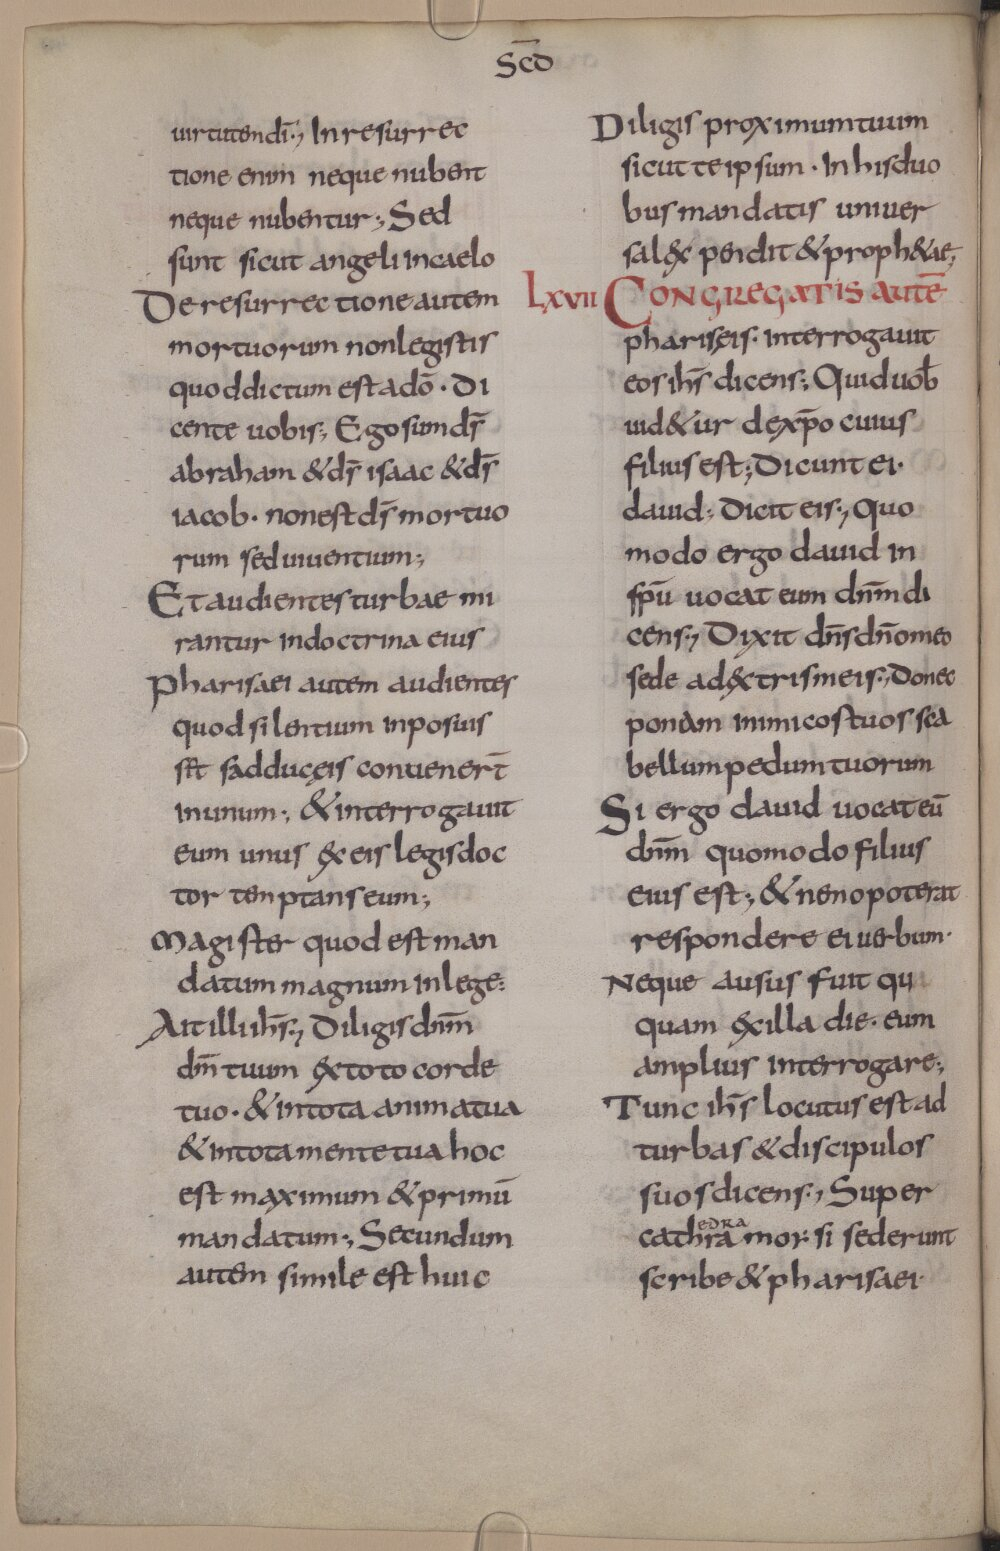 Sc̄d
uirtutem dī·, In resurrec
tione enim neque nubent
neque nubentur; Sed
sunt sicut angeli in caelo
De resurrectione autem
mortuorum non legistis
quod dictum est a dō· di
cente uobis; Ego sum dr̄
abraham & dr̄ isaac & dr̄
iacob· non est dr̄ mortuo
rum sed uiuentium;
Et audientes turbae mi
rantur in doctrina eius
Pharisaei autem audientes
quod silentium inposuis
s&̄ sadducęis conuenerт̄
in unum; & interrogauit
eum unus ex eis legis doc
tor temptans eum;
Magister quod est man
datum magnum in lege:
Ait illi ihs̄·, Diligis dnm̄
dm̄ tuum ex toto corde
tuo· & in tota anima tua
& in tota mente tua hoc
est maximum & primū
mandatum·, Secundum
autem simile est huic
Diligis proximum tuum
sicut te ipsum· In his duo
bus mandatis uniuer
sa lex pendit & proph&ae;
LXVII CONGREGATIS AUTĒ
pharisęis· interrogauit
eos ihs̄ dicens; Quid uob̄
uid&ur de xp̄o cuius
filius est; Dicunt ei·
dauid; Dicit eis·, Quo
modo ergo dauid in
sp̄u uocat eum dnm̄ di
cens·, Dixit dns̄ dn̄o meo
sede ad dextris meis·, Donec
ponam inimicos tuos sca
bellum pedum tuorum
Si ergo dauid uocat eū
dnm̄ quomodo filius
eius est; & nemo poterat
respondere ei uerbum·
Neque ausus fuit qu
quam ex illa die· eum
amplius interrogare;
Tunc ihs̄ locutus est ad
turbas & discipulos
suos dicens·, Super
edra
cathra mosi sederunt
scribe & pharisaei·